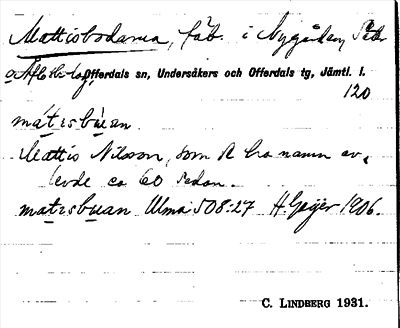 Mattisbodarna, fäb. i Nygården,
Offerdals sn, Undersåkers och Offerdals tg, Jämtl. l.
120
mátisbùan
Mattis Nilsson, som namn av,
levde ca 60 sedan.
matisbuan Ulma 508:27 H. Geijer 1906.
C. LINDBERG 1931.